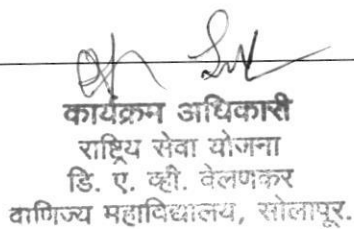 कार्यक्रम अधिकारी
राष्ट्रिय सेवा योजना
डि. ए. व्ही. वेलणकर
वाणिज्य महाविद्यालय, सोलापूर.